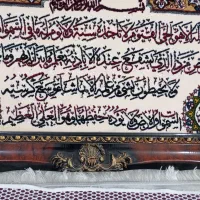 بسم الله الرحمن الرحيم
الله لا إله إلا هو الحي القيوم لا تأخذه سنة ولا نوم له ما في السموات
من ذا الذي يشفع عنده إلا بإذنه يعلم ما بين أيديهم وما
ولا يحيطون بشيء من علمه إلا بما شاء وسع كرسيه
السموات والأرض ولا يؤده حفظهما وهو العلي العظيم